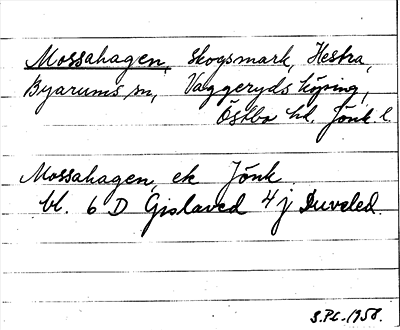 Mossahagen, skogsmark, Hestra,
Byarums sn, Vaggeryds köping,
Östbo hd. Jönk l.
Mossahagen, ek Jönk
bl. 6 D Gislaved 4 j Duveled.
S.Pl.-1958.